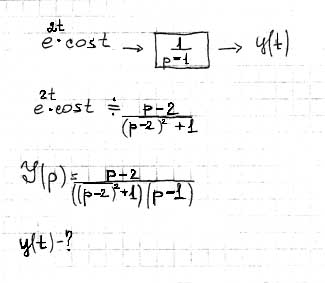 e^{2t}·cost → 1/(p-1) → y(t)
e^{2t}·cost ≑ (p-2)/((p-2)²+1)
Y(p) = (p-2)/(((p-2)²+1)(p-1))
y(t)-?